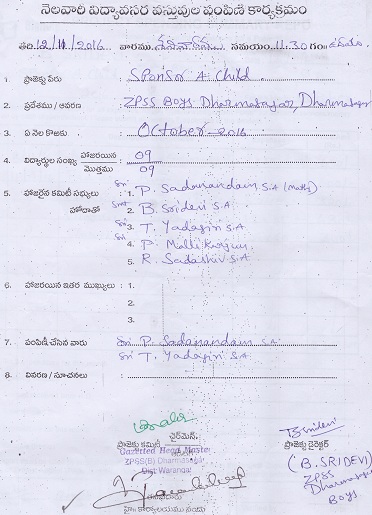 నెలవారీ విద్యావసర వస్తువుల పంపిణీ కార్యక్రమం
తేది: 12/11/2016 వారము శనివారం సమయం 11.30 గం॥
1. ప్రాజెక్టు పేరు : Sponsor A Child
2. ప్రదేశము / ఆవరణ : ZPSS Boys Dharmasagar, Dharmasagar
3. ఏ నెల కొరకు : October-2016
4. విద్యార్థుల సంఖ్య హాజరయిన 09
మొత్తము 09
5. హాజరైన కమిటీ సభ్యులు : 1. Sri P. Sadanandam S.A (maths)
హోదాతో Smt 2. B. Sridevi S.A
Sri 3. T. Yadagiri S.A
Sri 4. P. Mallikarjun
5. R. Sadashiv S.A
6. హాజరయిన ఇతర ముఖ్యులు : 1.
2.
3.
7. పంపిణీ చేసిన వారు : Sri P. Sadanandam S.A
Sri T. Yadagiri S.A
8. వివరణ / సూచనలు :
ప్రాజెక్టు కమిటీ ఛైర్మెన్
Gazetted Head Master
ZPSS(B) Dharmasagar
Dist Warangal
BSridevi
ప్రాజెక్టు డైరెక్టర్
(B. SRIDEVI)
ZPSS
Dharmasagar
Boys